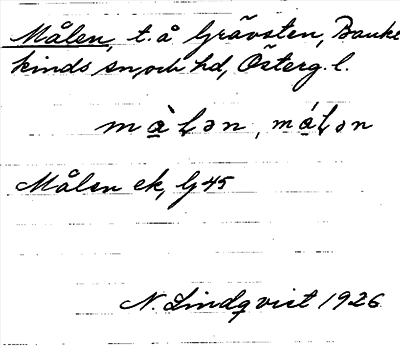 Målen, t. å Grävsten, Banke
kinds sn, och hd, Österg. l.
màlən, málən
Målen ek, G 45
N. Lindqvist 1926